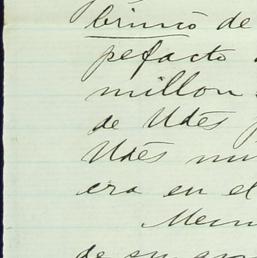 brinió de
pefacto
millon
de Udes
Udes mu
era en el
Mem
de su